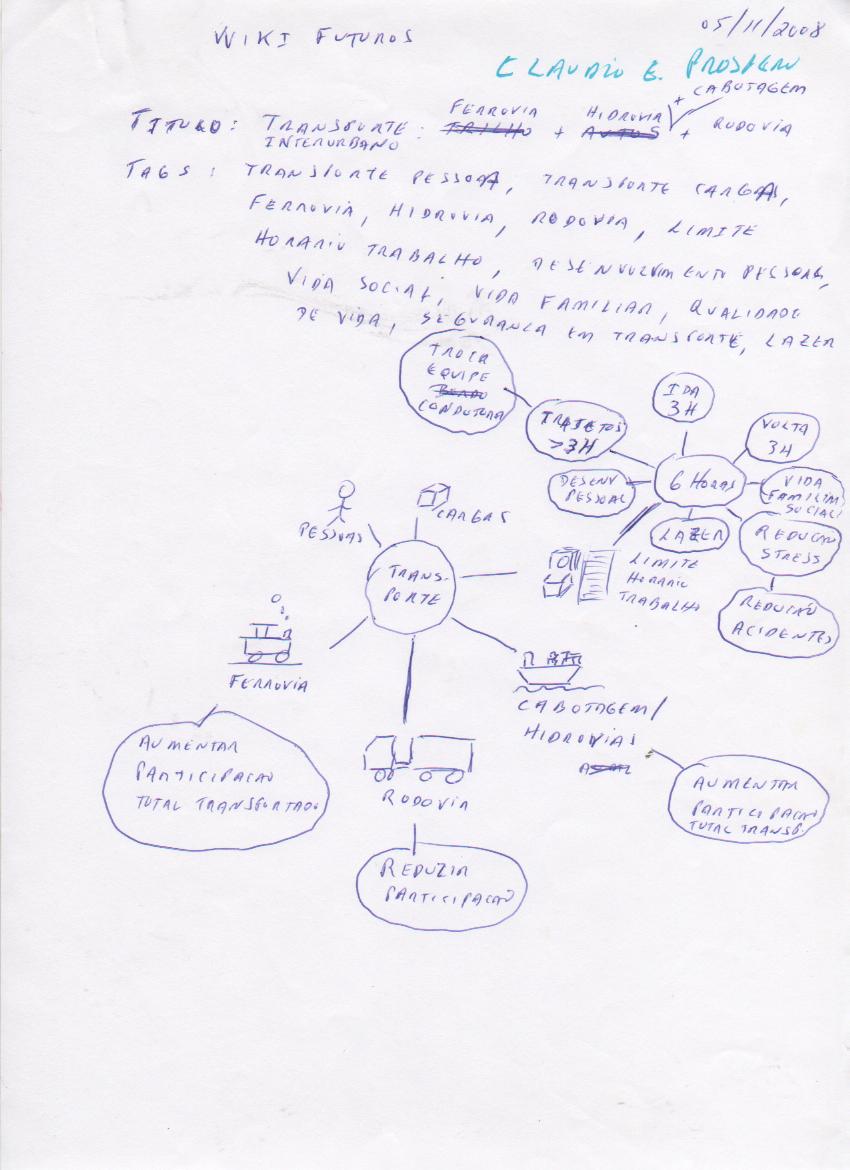 05/11/2008
WIKI FUTUROS
CLAUDIO E. PROSPERO
+ CABOTAGEM
FERROVIA HIDROVIA
TITULO: TRANSPORTE: TRILHO + + RODOVIA
INTERURBANO
TAGS: TRANSPORTE PESSOA, TRANSPORTE CARGAS,
FERROVIA, HIDROVIA, RODOVIA, LIMITE
HORARIO TRABALHO, DESENVOLVIMENTO PESSOAL,
VIDA SOCIAL, VIDA FAMILIAR, QUALIDADE
DE VIDA, SEGURANCA EM TRANSPORTE, LAZER
TROCA
EQUIPE
CONDUTORA
TRAJETOS
>3H
IDA
3H
VOLTA
3H
6 HORAS
DESENV
PESSOAL
VIDA
FAMILIAR
SOCIAL
LAZER
REDUCAO
STRESS
REDUCAO
ACIDENTES
PESSOAS
CARGAS
TRANS-
PORTE
LIMITE
HORARIO
TRABALHO
FERROVIA
AUMENTAR
PARTICIPACAO
TOTAL TRANSPORTADO
CABOTAGEM/
HIDROVIAS
AUMENTAR
PARTICIPACAO
TOTAL TRANSP.
RODOVIA
REDUZIR
PARTICIPACAO